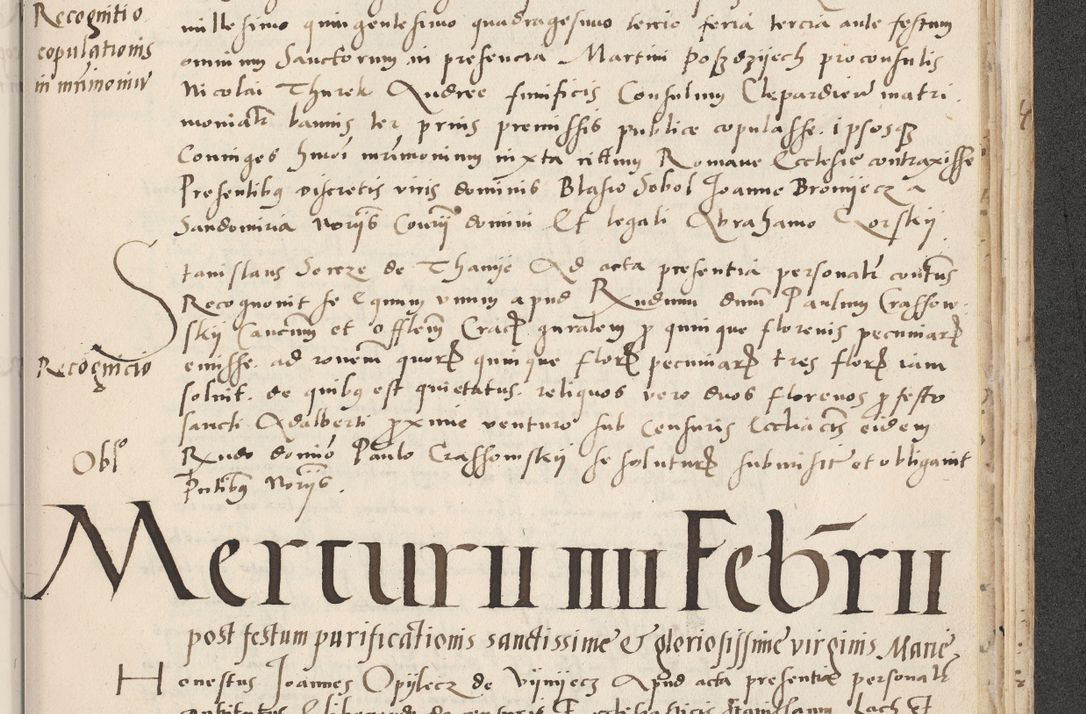 Recognitio
copulationis
in mrimoniu
millesimo quingentesimo quadragesimo tercio feria tercia ante festum
omnium Sanctorum in presencia Martini Poszdzijech proconsulis
Nicolai Thurek Andree funificis Consulum Clepardien matri
monialr bannis ter prius premissis publice copulasse. ipsosq
Coniuges hmoi mrimonium iuxta rittum Romane Ecclesie contraxisse
Presentibq discretis viris dominis Blasio Sobol Joanne Bronijecz a
Sandomiria Norijs Conrij domini Et legali Abrahamo Gorskij
Recognicio
Stanislaus Soreze de Thanije Ad acta presentia personalr contus
Recognovit se Equum unum apud Rndum dnum Paulum Crassow
skij Cancium et offlem Crac guralem p quinque florenis pecuniar
emisse. ad ronem quor quinque flor pecuniar tres flor iam
soluit. de quibq est quietatus. reliquos vero duos florenos p festo
sancti Adalberti pxime venturo sub Censuris Ecclia cis eidem
Oblo
Rndo domino Paulo Crassowskij se solutur submisit et obligavit
Pntibq Norijs.
Mercurii iiii Febrii
post festum purificationis sanctissime & gloriosissime virginis Marie
Honestus Joannes Opijlecz de Vijnijecz Apud acta presentia personalr